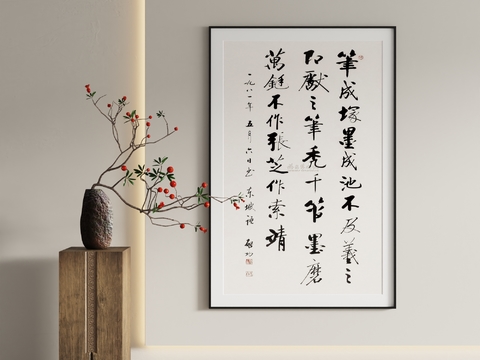 筆成塚墨成池不及羲之
即獻之筆禿千管墨磨
萬鋌不作張芝作索靖
一九八一年五月六日書東坡語 啟功